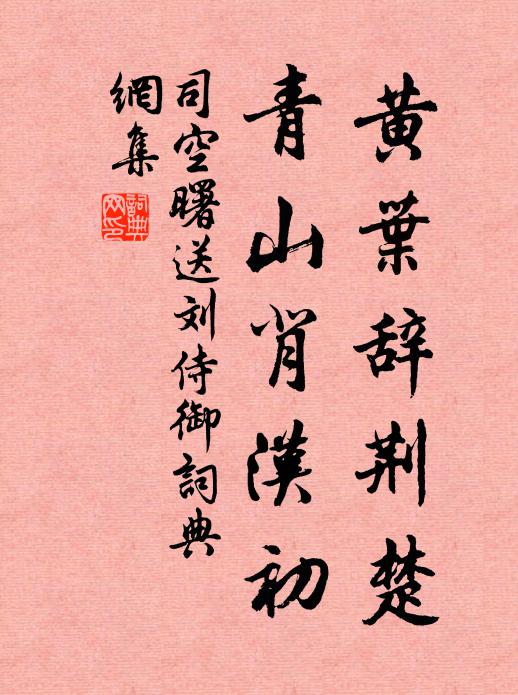 黄葉辞荆楚
青山背漢初
司空曙送刘侍御詞典
網集
詞典網印